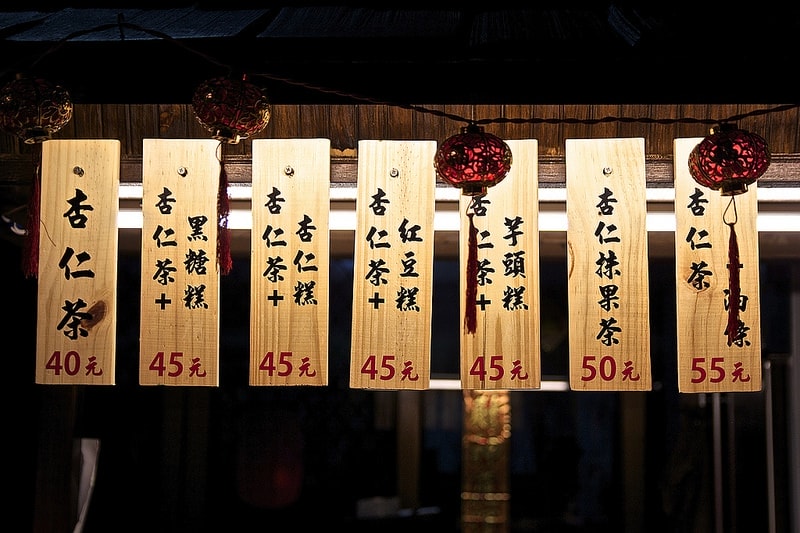 杏仁茶
40元
杏仁茶+
黑糖糕
45元
杏仁茶+
杏仁糕
45元
杏仁茶+
紅豆糕
45元
杏仁茶+
芋頭糕
45元
杏仁抹果茶
50元
杏仁茶
+油條
55元